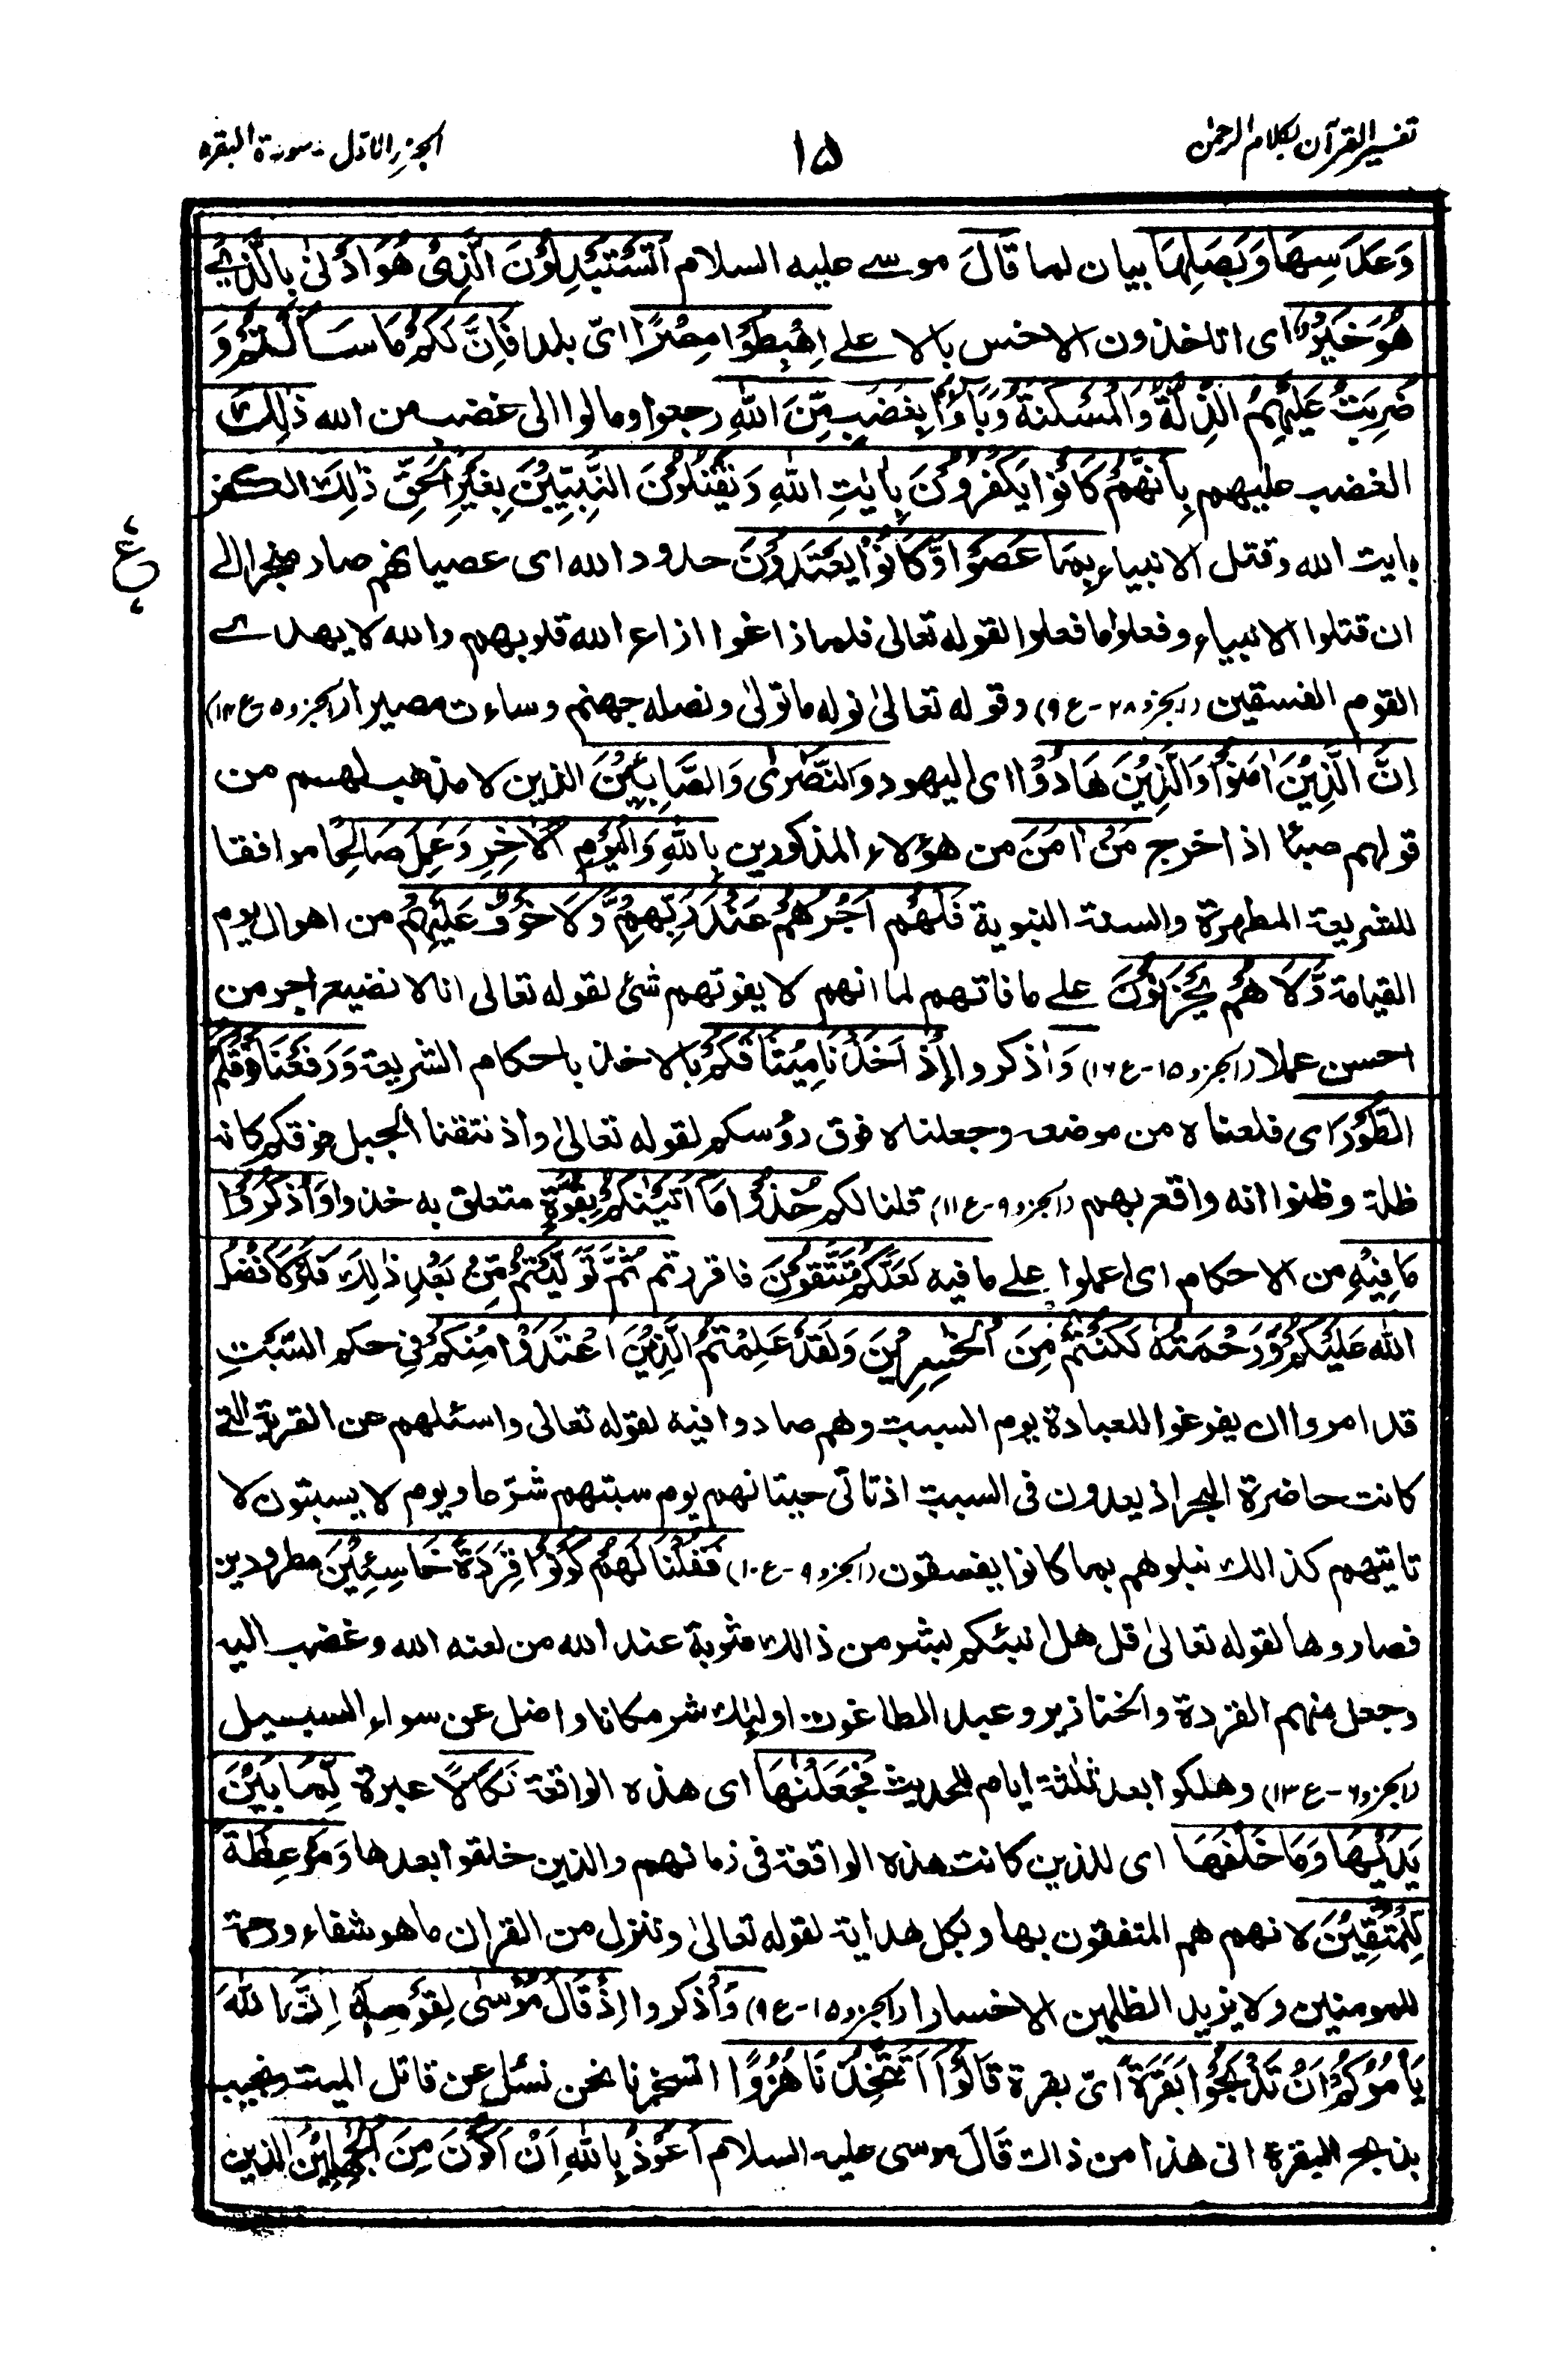 تفسیر القرآن بکلام الرحمٰن
۱۵
الجزء الاول - سورة البقره
وَعَدَسِهَا وَبَصَلِهَا بیان لما قَالَ موسے علیه السلام اَتَسْتَبْدِلُوْنَ الَّذِیْ هُوَ اَدْنٰى بِالَّذِیْ
هُوَ خَیْرٌ ای اتاخذون الاخس بالاعلے اِهْبِطُوْا مِصْرًا ایّ بلد فَاِنَّ لَکُمْ مَا سَاَلْتُمْ وَ
ضُرِبَتْ عَلَیْهِمُ الذِّلَّةُ وَالْمَسْکَنَةُ وَبَآءُوْا بِغَضَبٍ مِّنَ اللّٰهِ رجعوا ومالوا الی غضب من الله ذٰلِكَ
الغضب علیهم بِاَنَّهُمْ کَانُوْا یَکْفُرُوْنَ بِاٰیٰتِ اللّٰهِ وَیَقْتُلُوْنَ النَّبِیِّیْنَ بِغَیْرِ الْحَقِّ ذٰلِكَ الکفر
بایت الله وقتل الانبیاء بِمَا عَصَوْا وَّکَانُوْا یَعْتَدُوْنَ حدود الله ای عصیانهم صار منجرا الے
ع
ان قتلوا الانبیاء وفعلوا ما فعلوا لقوله تعالى فلما زاغوا ازاغ الله قلوبهم والله لا یهدے
القوم الفسقین (الجزو ۲۸-ع ۹) وقوله تعالیٰ نوله ما تولیٰ ونصله جهنم وساءت مصیرا (الجزو ۵-ع ۱۴)
اِنَّ الَّذِیْنَ اٰمَنُوْا وَالَّذِیْنَ هَادُوْا ای الیهود وَالنَّصٰرٰى وَالصَّابِئِیْنَ الذین لا مذهب لهم من
قولهم صبئا اذا خرج مَنْ اٰمَنَ من هؤلاء المذکورین بِاللّٰهِ وَالْیَوْمِ الْاٰخِرِ وَعَمِلَ صَالِحًا موافقا
للشریعة المطهرة والسنة النبویة فَلَهُمْ اَجْرُهُمْ عِنْدَ رَبِّهِمْ وَلَا خَوْفٌ عَلَیْهِمْ من اهوال یوم
القیامة وَّلَا هُمْ یَحْزَنُوْنَ علے ما فاتهم لما انهم لا یفوتهم شئ لقوله تعالی انا لا نضیع اجر من
احسن عملا (الجزو ۱۵-ع ۱۶) وَاذکروا اِذْ اَخَذْنَا مِیْثَاقَکُمْ بالاخذ باحکام الشریعة وَرَفَعْنَا فَوْقَکُمُ
الطُّوْرَ ای قلعناه من موضعه وجعلناه فوق رؤسکم لقوله تعالیٰ واذ نتقنا الجبل فوقکم کانه
ظلة وظنوا انه واقع بهم (الجزو ۹-ع ۱۱) قلنا لکم خُذُوْا مَا اٰتَیْنٰکُمْ بِقُوَّةٍ متعلق به خذوا وَاذْکُرُوْا
مَا فِیْهِ من الاحکام ای اعملوا علے ما فیه لَعَلَّکُمْ تَتَّقُوْنَ فاقررتم ثُمَّ تَوَلَّیْتُمْ مِّنْ بَعْدِ ذٰلِكَ فَلَوْلَا فَضْلُ
اللّٰهِ عَلَیْکُمْ وَرَحْمَتُهٗ لَکُنْتُمْ مِّنَ الْخٰسِرِیْنَ وَلَقَدْ عَلِمْتُمُ الَّذِیْنَ اعْتَدَوْا مِنْکُمْ فِیْ حکم السَّبْتِ
قد امروا ان یفرغوا للعبادة یوم السبت وهم صادوا فیه لقوله تعالی واسئلهم عن القریة التے
کانت حاضرة البحر اذ یعدون فی السبت اذ تاتی حیتانهم یوم سبتهم شرّعا ویوم لا یسبتون لا
تاتیهم کذالك نبلوهم بما کانوا یفسقون (الجزو ۹-ع ۱۰) فَقُلْنَا لَهُمْ کُوْنُوْا قِرَدَةً خَاسِئِیْنَ مطرودین
فصاروها لقوله تعالیٰ قل هل انبئکم بشر من ذالك مثوبة عند الله من لعنه الله وغضب الیه
وجعل منهم القردة والخنازیر وعبد الطاغوت اولٰئك شر مکانا واضل عن سواء السبیل
(الجزو ۶-ع ۱۳) وهلکوا بعد ثلٰثة ایام للحدیث فَجَعَلْنٰهَا ای هذه الواقعة نَکَالًا عبرة لِّمَا بَیْنَ
یَدَیْهَا وَمَا خَلْفَهَا ای للذین کانت هذه الواقعة فی زمانهم والذین خلقوا بعدها وَمَوْعِظَةً
لِّلْمُتَّقِیْنَ لانهم هم المتفقون بها وبکل هدایة لقوله تعالیٰ وننزل من القران ما هو شفاء ورحمة
للمومنین ولا یزید الظلمین الا خسارا (الجزو ۱۵-ع ۹) وَاُذکروا اِذْ قَالَ مُوْسٰى لِقَوْمِهٖ اِنَّ اللّٰهَ
یَاْمُرُکُمْ اَنْ تَذْبَحُوْا بَقَرَةً ایّ بقرة قَالُوْا اَتَتَّخِذُنَا هُزُوًا اتسخرنا نحن نسئل عن قاتل المیت وتجیب
بذبح البقرة انی هذا من ذاك قَالَ موسی علیه السلام اَعُوْذُ بِاللّٰهِ اَنْ اَکُوْنَ مِنَ الْجٰهِلِیْنَ الذین